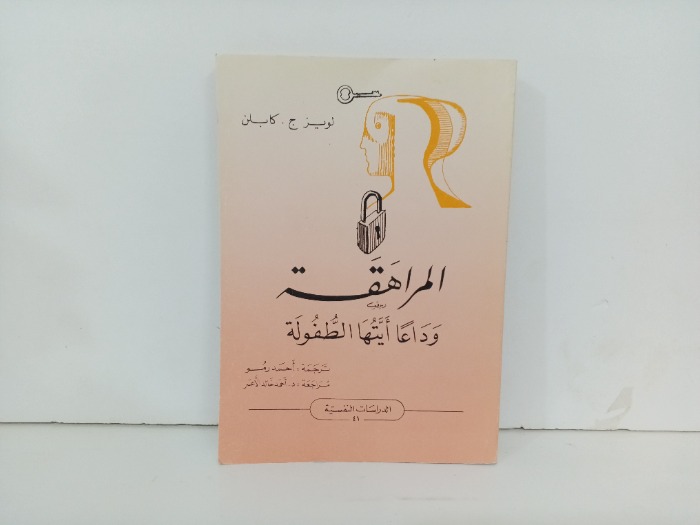 لويز ج. كابلن
المراهقة
وَدَاعًا أَيَّتُهَا الطُّفُولَة
تَرجَمَة: أحمد رمو
مُرَاجَعَة: د. أحمد خالد
الدراسات النفسية
٤١